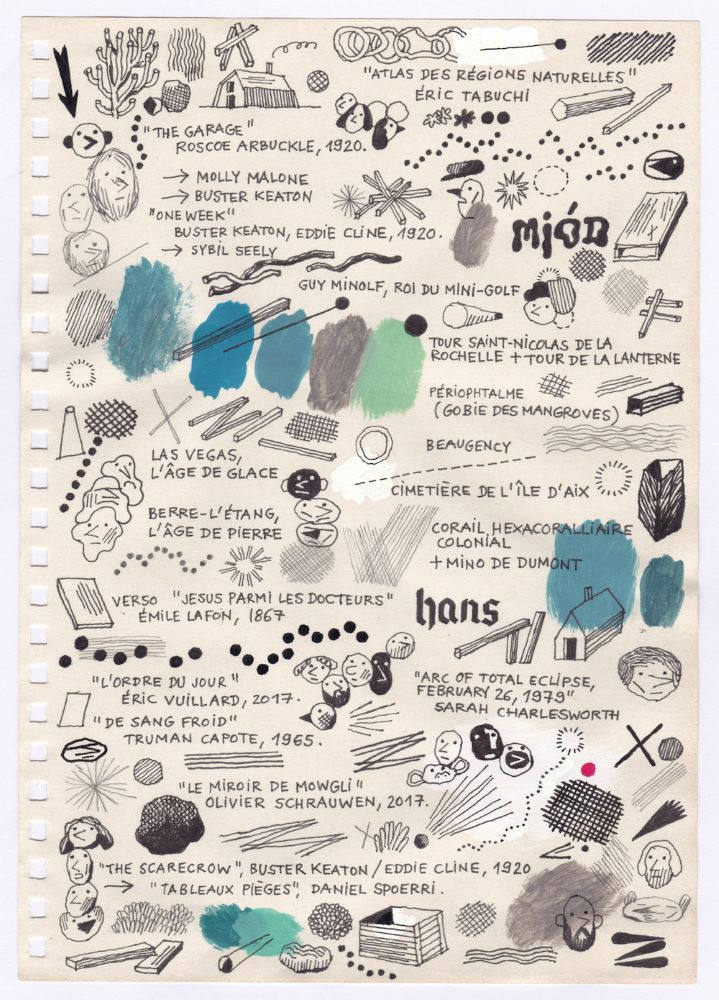 "ATLAS DES RÉGIONS NATURELLES"
ÉRIC TABUCHI
"THE GARAGE"
ROSCOE ARBUCKLE, 1920.
→ MOLLY MALONE
→ BUSTER KEATON
"ONE WEEK"
BUSTER KEATON, EDDIE CLINE, 1920.
→ SYBIL SEELY
mjóD
GUY MINOLF, ROI DU MINI-GOLF
TOUR SAINT-NICOLAS DE LA
ROCHELLE + TOUR DE LA LANTERNE
PÉRIOPHTALME
(GOBIE DES MANGROVES)
BEAUGENCY
LAS VEGAS,
L'ÂGE DE GLACE
CIMETIÈRE DE L'ÎLE D'AIX
BERRE-L'ÉTANG,
L'ÂGE DE PIERRE
CORAIL HEXACORALLIAIRE
COLONIAL
+ MINO DE DUMONT
VERSO "JESUS PARMI LES DOCTEURS"
ÉMILE LAFON, 1867
hans
"L'ORDRE DU JOUR"
ÉRIC VUILLARD, 2017.
"ARC OF TOTAL ECLIPSE,
FEBRUARY 26, 1979"
SARAH CHARLESWORTH
"DE SANG FROID"
TRUMAN CAPOTE, 1965.
"LE MIROIR DE MOWGLI"
OLIVIER SCHRAUWEN, 2017.
"THE SCARECROW", BUSTER KEATON / EDDIE CLINE, 1920
→ "TABLEAUX PIÈGES", DANIEL SPOERRI.